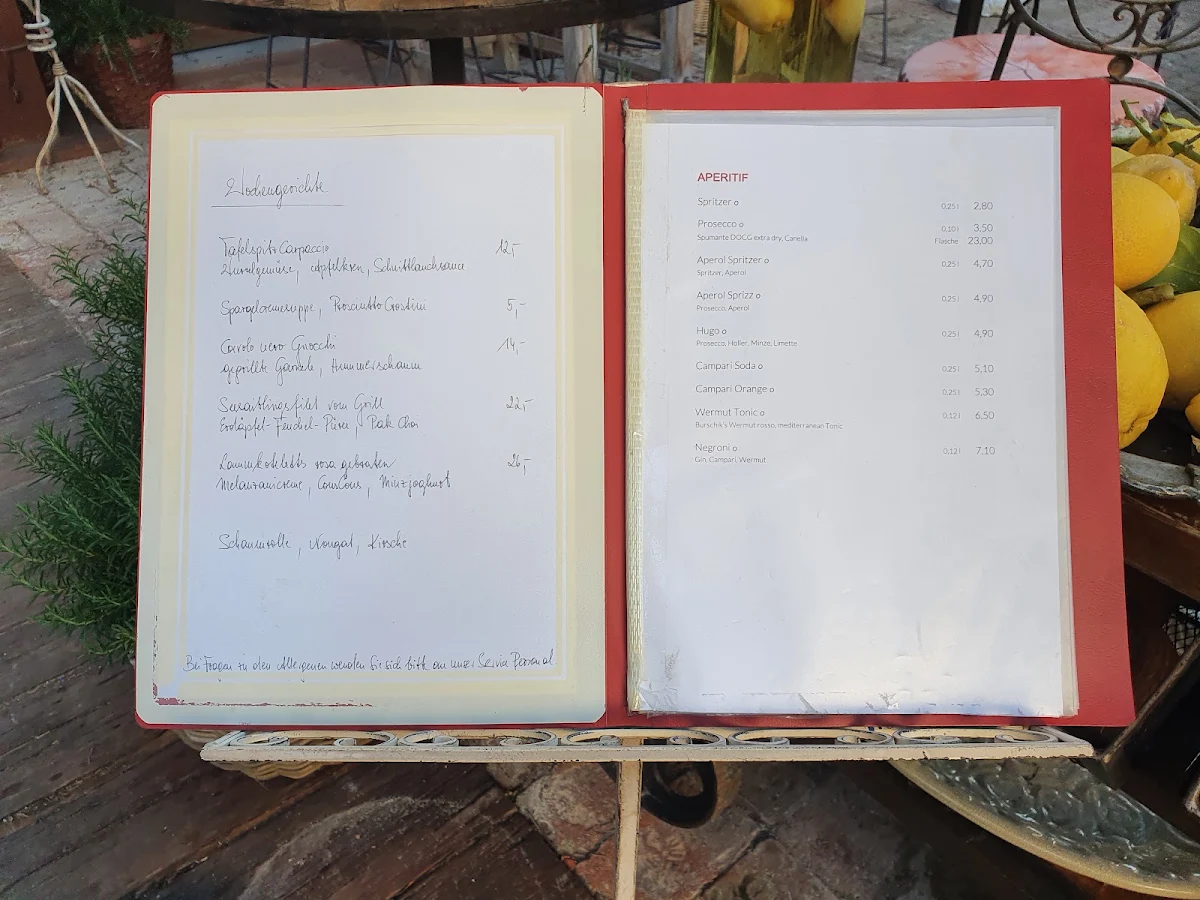 Wochengerichte
Tafelspitz Carpaccio 12,-
Wurzelgemüse, Apfelkren, Schnittlauchsauce
Spargelcremesuppe, Prosciutto Crostini 5,-
Cavolo nero Gnocchi 14,-
gegrillte Garnele, Hummerschaum
Seesaiblingsfilet vom Grill 22,-
Erdäpfel-Fenchel-Püree, Pak Choi
Lammkoteletts rosa gebraten 26,-
Melanzanicreme, CousCous, Minzjoghurt
Schaumrolle, Nougat, Kirsche
Bei Fragen zu den Allergenen wenden Sie sich bitte an unser Service Personal
APERITIF
Spritzer o 0,25 l 2,80
Prosecco o 0,10 l 3,50
Spumante DOCG extra dry, Canella Flasche 23,00
Aperol Spritzer o 0,25 l 4,70
Spritzer, Aperol
Aperol Sprizz o 0,25 l 4,90
Prosecco, Aperol
Hugo o 0,25 l 4,90
Prosecco, Holler, Minze, Limette
Campari Soda o 0,25 l 5,10
Campari Orange o 0,25 l 5,30
Wermut Tonic o 0,12 l 6,50
Burschik's Wermut rosso, mediterranean Tonic
Negroni o 0,12 l 7,10
Gin, Campari, Wermut